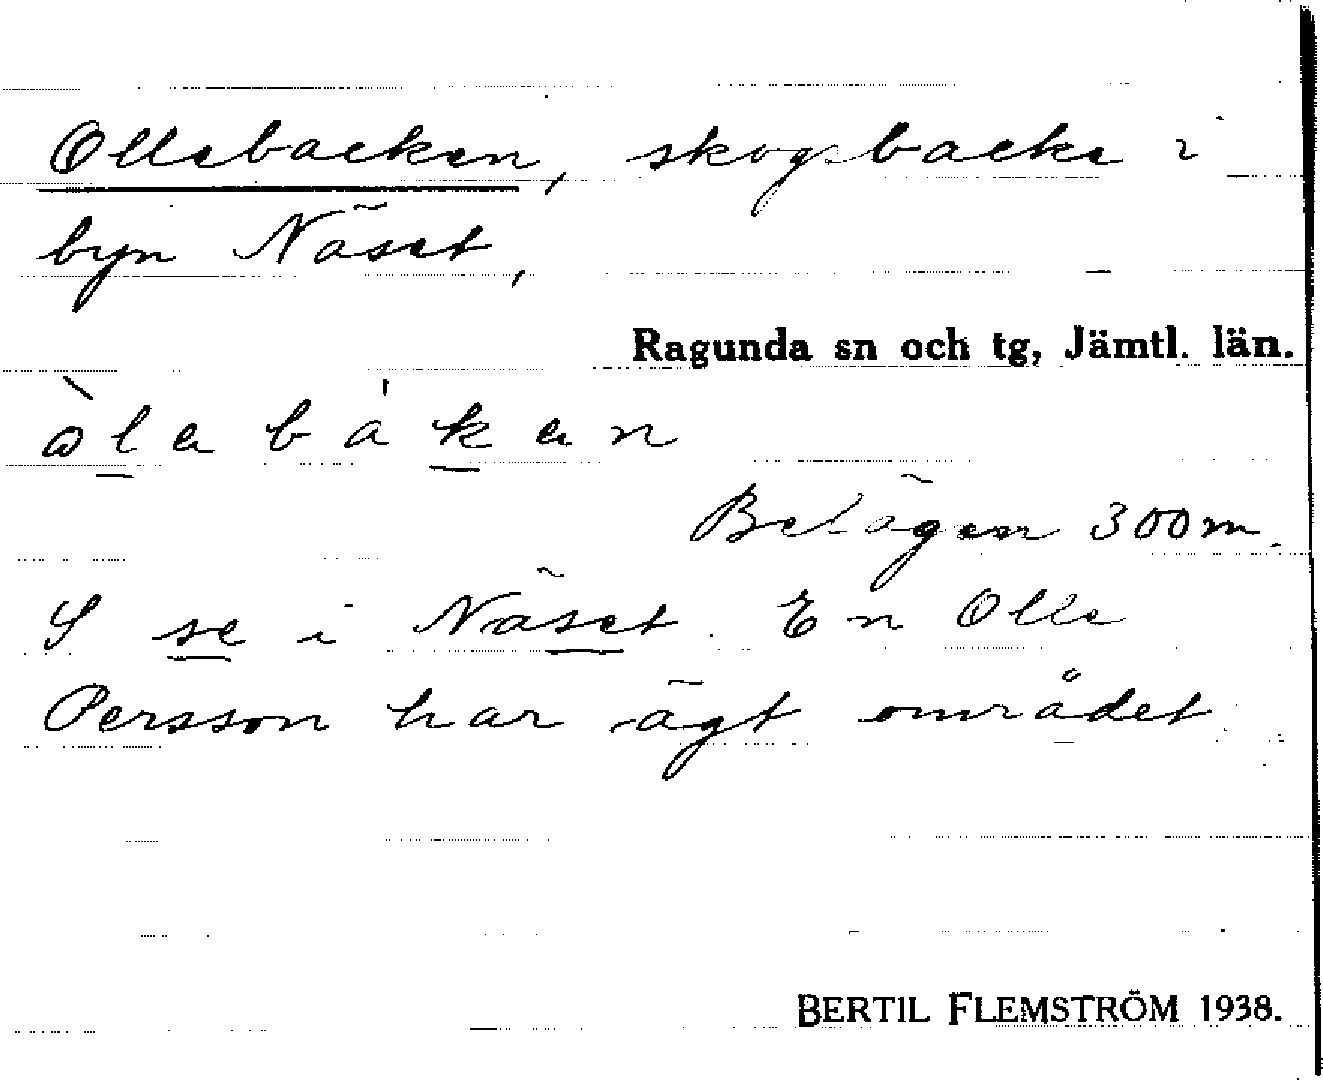 Ollebacken, skogsbacke i
byn Näset,
Ragunda sn och tg, Jämtl. län.
òlebáken
Belägen 300 m.
S se i Näset. En Olle
Persson har ägt området
BERTIL FLEMSTRÖM 1938.